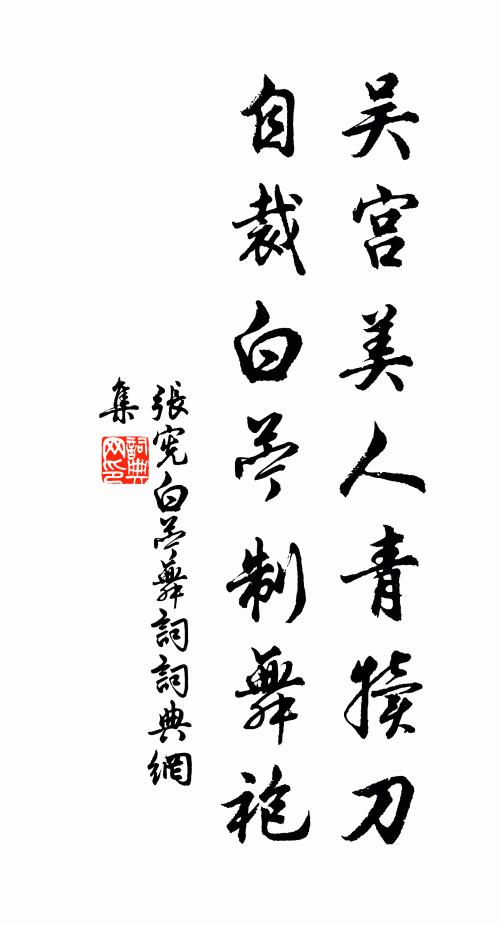 吴宫美人青犢刀
自裁白苧制舞袍
張宪白苧舞詞詞典網
集
詞典
网印